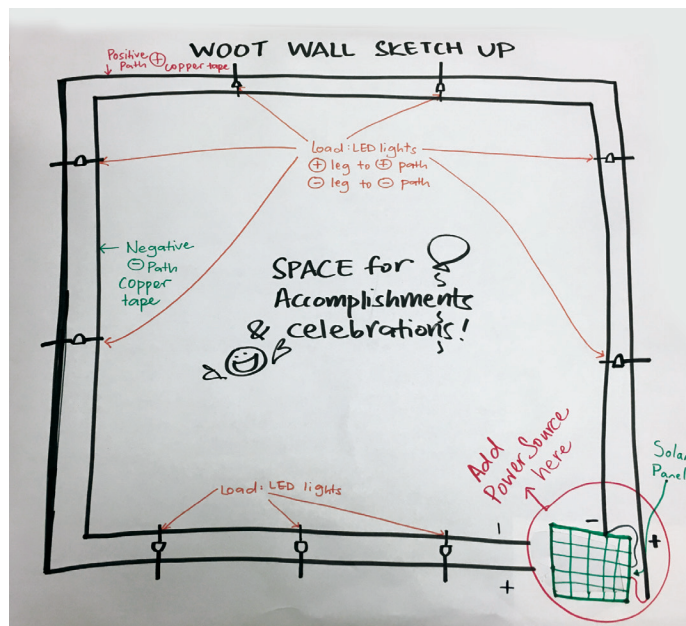 WOOT WALL SKETCH UP
Positive
Path ⊕
copper tape
Load: LED lights
⊕ leg to ⊕ path
⊖ leg to ⊖ path
Negative
⊖ Path
copper
tape
SPACE for
Accomplishments
& celebrations!
Add
Power Source
here
Solar
Panel
Load: LED lights
-
+
-
+